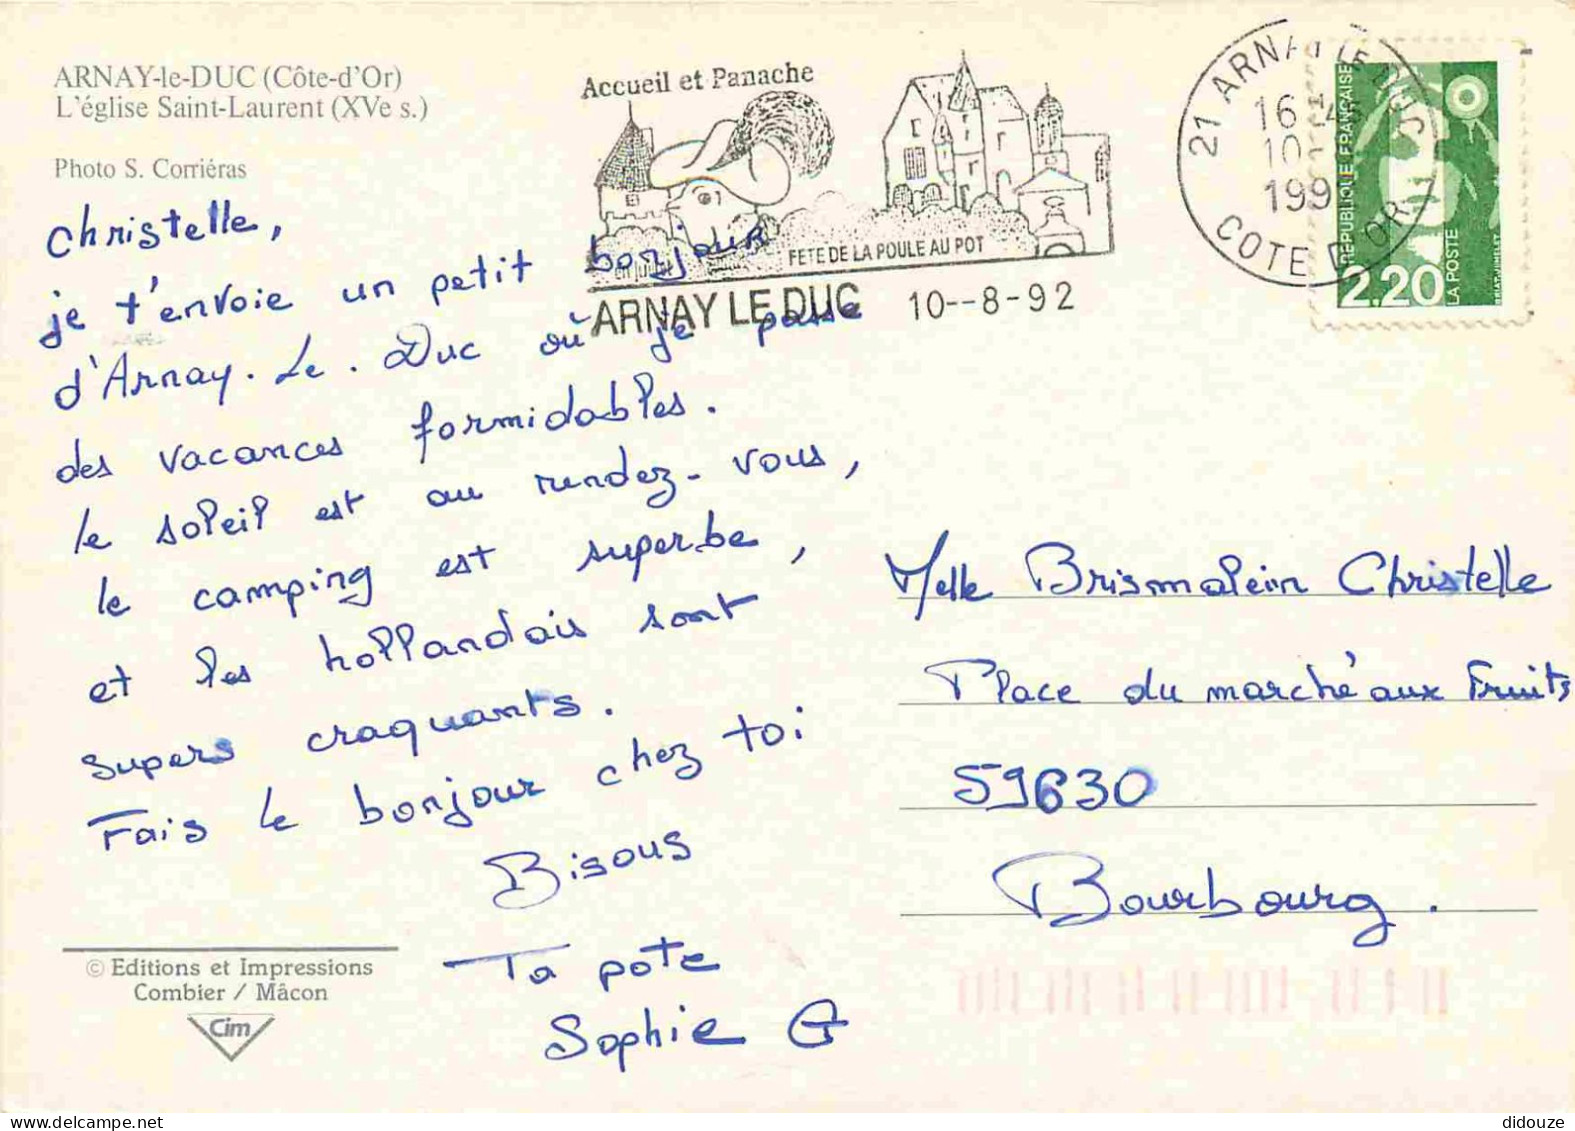 ARNAY-le-DUC (Côte-d'Or)
L'église Saint-Laurent (XVe s.)
Photo S. Corriéras
Accueil et Panache
en juillet
FETE DE LA POULE AU POT
ARNAY LE DUC 10--8-92
21 ARNAY LE DUC
16 H
10
199
COTE D'OR
REPUBLIQUE FRANÇAISE
2,20
LA POSTE
BRIAT-JUMELET
Christelle,
je t'envoie un petit bonjour
d'Arnay. Le. Duc où je passe
des vacances formidables.
le soleil est au rendez-vous,
le camping est superbe,
et les hollandais sont
supers craquants.
Fais le bonjour chez toi
Bisous
Ta pote
Sophie G
Melle Brismalein Christelle
Place du marché aux Fruits
59630
Bourbourg.
© Editions et Impressions
Combier / Mâcon
Cim
didouze